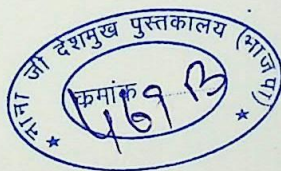 नाना जी देशमुख पुस्तकालय (भाजपा)
क्रमांक